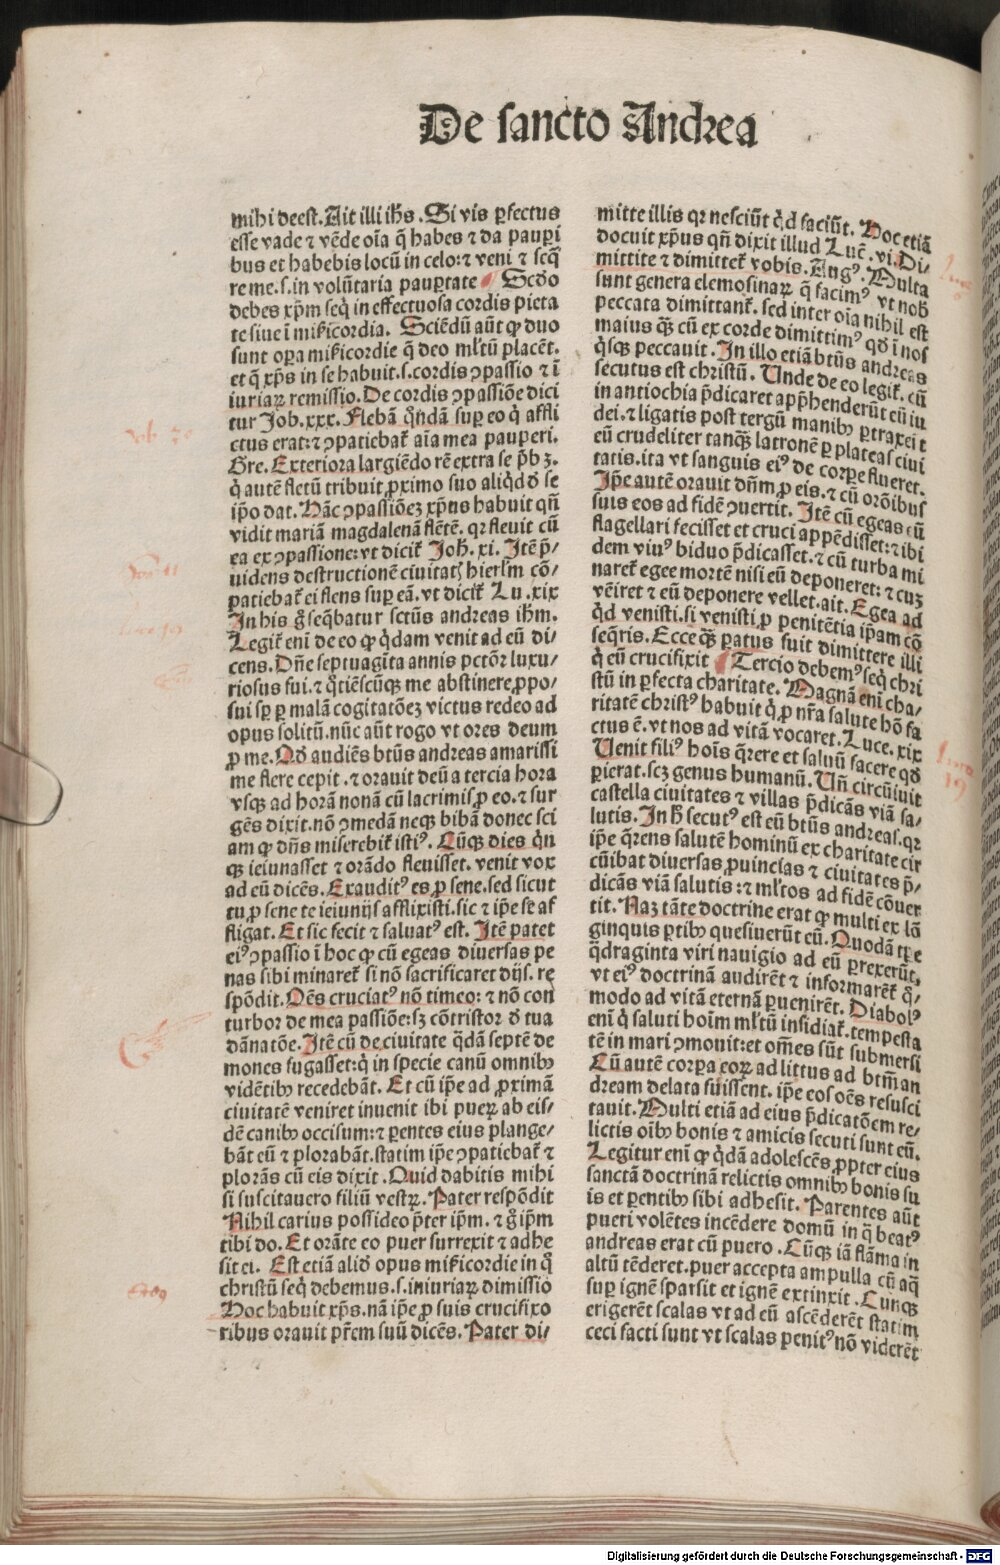 De sancto Andrea
mihi deest. Ait illi ih̄s. Si vis ꝑfectus
esse vade ⁊ vēde oīa q̄ habes ⁊ da pauꝑi
bus et habebis locū in celo: ⁊ veni ⁊ seq̄
re me. s. in volūtaria pauꝑtate Scd̄o
debes xp̄m seq̄ in effectuosa cordis pieta
te siue ī mīsericordia. Sciēdū aūt ꝙ duo
sunt oꝑa mīsericordie q̄ deo ml̄tū placēt.
et q̄ xp̄s in se habuit. s. cordis ꝯpassio ⁊ ī
iuriaꝝ remissio. De cordis ꝯpassiōe dici
tur Job. xxx. Flebā q̄ndā suꝑ eo q̇ affli
ctus erat: ⁊ ꝯpatiebat̄ aīa mea pauperi.
Gre. Exteriora largiēdo rē extra se p̄bꝫ.
q̇ autē fletū tribuit ꝓximo suo aliq̇d d̄ se
ip̄o dat. Hāc ꝯpassiōeꝫ xp̄us habuit qn̄
vidit mariā magdalenā flētē. qꝛ fleuit cū
ea ex ꝯpassione: vt dicit̄ Joh̄. xi. Itē p̄/
uidens destructionē ciuitatꝭ hierl̄m cō/
patiebat̄ ei flens suꝑ eā. vt dicit̄ Lu. xix
In his g̊ seq̄batur sctūs andreas ih̄m.
Legit̄ eni de eo ꝙ q̇dam venit ad eū di/
cens. Dn̄e septuagīta annis pctōꝛ luxu/
riosus fui. ⁊ q̇tiēscūqꝫ me abstinere ꝓpo/
sui sꝑ ꝑ malā cogitatōeꝫ victus redeo ad
opus solitū. nūc aūt rogo vt ores deum
ꝓ me. Qd̄ audiēs btūs andreas amarissi
me flere cepit. ⁊ orauit deū a tercia hora
vsqꝫ ad horā nonā cū lacrimis ꝓ eo. ⁊ sur
gēs dixit. nō ꝯmedā neqꝫ bibā donec sci
am ꝙ dn̄s miserebit̄ istiꝰ. Cūqꝫ dies q̇n
qꝫ ieiunasset ⁊ orādo fleuisset. venit vox
ad eū dicēs. Exauditꝰ es ꝓ sene. sed sicut
tu ꝓ sene te ieiunijs afflixisti. sic ⁊ ip̄e se af
fligat. Et sic fecit ⁊ saluatꝰ est. Itē patet
eiꝰ ꝯpassio ī hoc ꝙ cū egeas diuersas pe
nas sibi minaret̄ si nō sacrificaret dijs. re
spōdit. Oēs cruciatꝰ nō timeo: ⁊ nō con
turbor de mea passiōe: sꝫ cōtristor d̄ tua
dānatōe. Itē cū de ciuitate q̇dā septē de
mones fugasset: q̇ in specie canū omnibꝰ
vidētibꝰ recedebāt. Et cū ip̄e ad ꝓximā
ciuitatē veniret inuenit ibi pueꝝ ab eis/
dē canibꝰ occisum: ⁊ ꝑentes eius plange/
bāt eū ⁊ plorabāt. statim ip̄e ꝯpatiebat̄ ⁊
plorās cū eis dixit. Quid dabitis mihi
si suscitauero filiū vestꝝ. Pater respōdit
Nihil carius possideo p̄ter ip̄m. ⁊ g̊ ip̄m
tibi do. Et orāte eo puer surrexit ⁊ adhe
sit ei. Est etiā aliō opus mīsericordie in q̊
christū seq̇ debemus. s. iniuriaꝝ dimissio
Hoc habuit xp̄s. nā ip̄e ꝓ suis crucifixo
ribus orauit pr̄em suū dicēs. Pater di/
mitte illis qꝛ nesciūt q̇d faciūt. Hoc etiā
docuit xp̄us qn̄ dixit illud Luc̄. vi. Di/
mittite ⁊ dimittet̄ vobis. Augꝰ. Multa
sunt genera elemosinaꝝ q̄ facimꝰ vt nob̄
peccata dimittant̄. sed inter oīa nihil est
maius qꝫ̄ cū ex corde dimittimꝰ qd̄ ī nos
q̇sqꝫ peccauit. In illo etiā btūs andreas
secutus est christū. Unde de eo legit̄. cū
in antiochia p̄dicaret app̄henderūt eū iu
dei. ⁊ ligatis post tergū manibꝰ ꝑtraxei t
eū crudeliter tanqꝫ̄ latronē ꝑ plateas ciui
tatis. ita vt sanguis eiꝰ de corꝑe flueret.
Ip̄e autē orauit dn̄m ꝓ eis. ⁊ cū orōibus
suis eos ad fidē ꝯuertit. Itē cū egeas eū
flagellari fecisset et cruci appēdisset: ⁊ ibi
dem viuꝰ biduo p̄dicasset. ⁊ cū turba mi
naret̄ egee mortē nisi eū deponeret: ⁊ cuꝫ
vēiret ⁊ eū deponere vellet. ait. Egea ad
q̇d venisti. si venisti ꝓ penitētia ip̄am cō
seq̄ris. Ecce qꝫ̄ ꝑatus fuit dimittere illi
q̇ eū crucifixit Tercio debemꝰ seq̇ chri
stū in ꝑfecta charitate. Magnā eni cha/
ritatē christꝰ habuit q̇ ꝓ nr̄a salute hō fa
ctus ē. vt nos ad vitā vocaret. Luce. xix
Uenit filiꝰ hoīs q̄rere et saluū facere qd̄
ꝑierat. scꝫ genus humanū. Un̄ circūiuit
castella ciuitates ⁊ villas p̄dicās viā sa/
lutis. In h̄ secutꝰ est eū btūs andreas. qꝛ
ip̄e q̄rens salutē hominū ex charitate cir
cūibat diuersas ꝓuincias ⁊ ciuitates p̄/
dicās viā salutis: ⁊ ml̄tos ad fidē cōuer
tit. Naꝫ tāte doctrine erat ꝙ multi ex lō
ginquis ꝑtibꝰ quesiuerūt eū. Quodā tꝑe
q̇draginta viri nauigio ad eū ꝑrexerūt,
vt eiꝰ doctrinā audirēt ⁊ informarēt̄ q̊/
modo ad vitā eternā ꝑuenirēt. Diabolꝰ
eni q̇ saluti hoīm ml̄tū insidiat̄. tempesta
tē in mari ꝯmouit: et om̄es sūt submersi
Cū autē corꝑa eoꝝ ad littus ad btm̄ an
dream delata fuissent. ip̄e eos oēs resusci
tauit. Multi etiā ad eius p̄dicatōem re/
lictis oībꝰ bonis ⁊ amicis secuti sunt eū.
Legitur eni ꝙ q̇dā adolescēs ꝓpter eius
sanctā doctrinā relictis omnibꝰ bonis su
is et ꝑentibꝰ sibi adhesit. Parentes aūt
pueri volētes incēdere domū in q̄ beatꝰ
andreas erat cū puero. Cūqꝫ iā flāma in
altū tēderet. puer accepta ampulla cū aq̄
suꝑ ignē sparsit et ignē extinxit. Cunqꝫ
erigerēt scalas vt ad eū ascēderēt statim
ceci facti sunt vt scalas penitꝰ nō viderēt
Digitalisierung gefördert durch die Deutsche Forschungsgemeinschaft - DFG